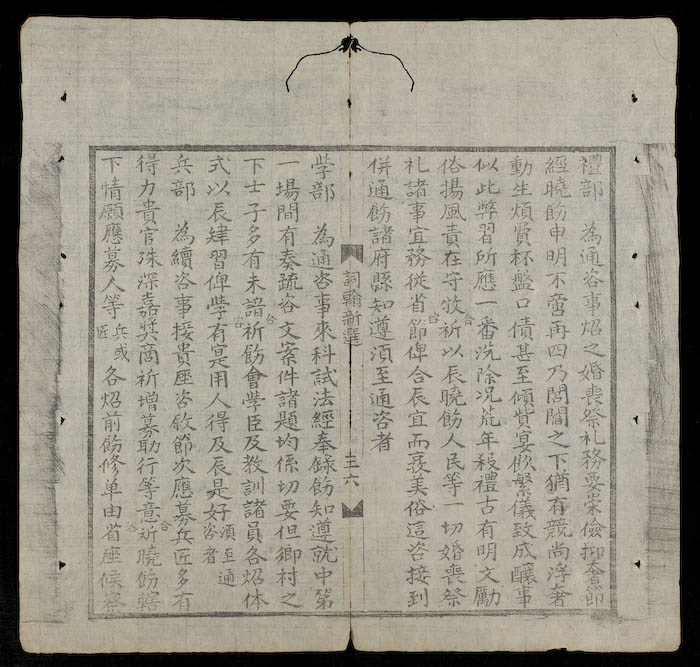 禮部　為通咨事炤之婚喪祭礼務要崇儉抑奢節
經曉飭申明不啻再四乃閭閻之下猶有競尚浮奢
動生煩費杯盤口債甚至傾貲宴飲繁儀致成釀事
似此弊習所應一番洗除况荒年殺禮古有明文勵
俗揚風責在守牧咨祈以辰曉飭人民等一切婚喪祭
礼諸事宜務從省節俾合辰宜而裒美俗這咨接到
併通飭諸府縣知遵須至通咨者
詞翰新選
三六
学部　為通咨事來科試法經奉録飭知遵就中第
一場間有奏疏咨文案件諸題均係切要但鄉村之
下士子多有未諳祈飭會學臣及教訓諸員各炤体
式以辰肄習俾學有寔用人得及辰是好須至通咨者
兵部　為續咨事接貴座咨敘節次應募兵匠多有
得力貴官殊深嘉奬商祈增募助行等意祈曉飭轄
下情願應募人等兵或匠各炤前飭修单由省座候寮